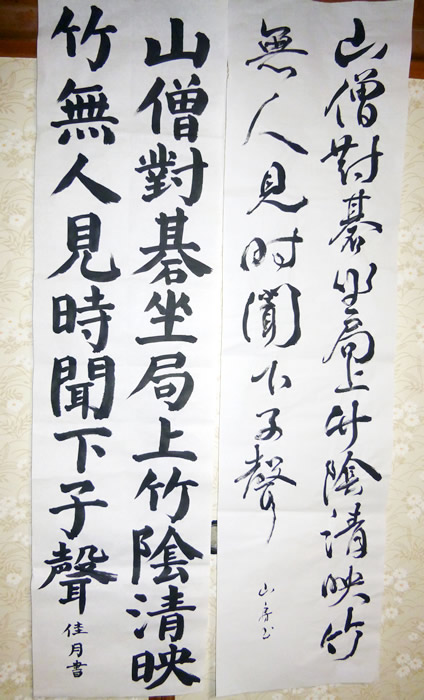 山僧對碁坐局上竹陰清映竹
無人見時聞下子聲
山僧對碁坐局上竹陰清映
竹無人見時聞下子聲
佳月書